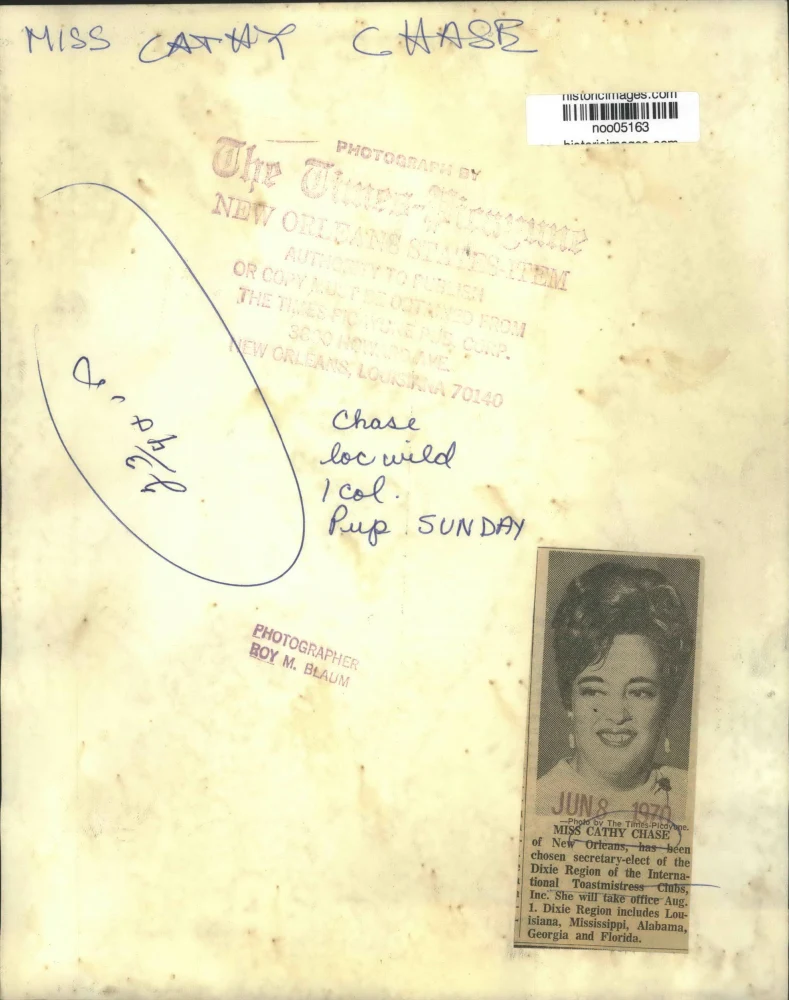 MISS CATHY CHASE
historicimages.com
noo05163
historicimages.com
PHOTOGRAPH BY
The Times-Picayune
NEW ORLEANS STATES-ITEM
AUTHORITY TO PUBLISH
OR COPY MUST BE OBTAINED FROM
THE TIMES PICAYUNE PUB. CORP.
HOWARD AVE.
NEW ORLEANS, LOUISIANA 70140
Chase
loc wild
1 col.
Pup SUNDAY
PHOTOGRAPHER
ROY M. BLAUM
JUN 8 1970
—Photo by The Times-Picayune.
MISS CATHY CHASE
of New Orleans, has been
chosen secretary-elect of the
Dixie Region of the Interna-
tional Toastmistress Clubs,
Inc. She will take office Aug.
1. Dixie Region includes Lou-
isiana, Mississippi, Alabama,
Georgia and Florida.